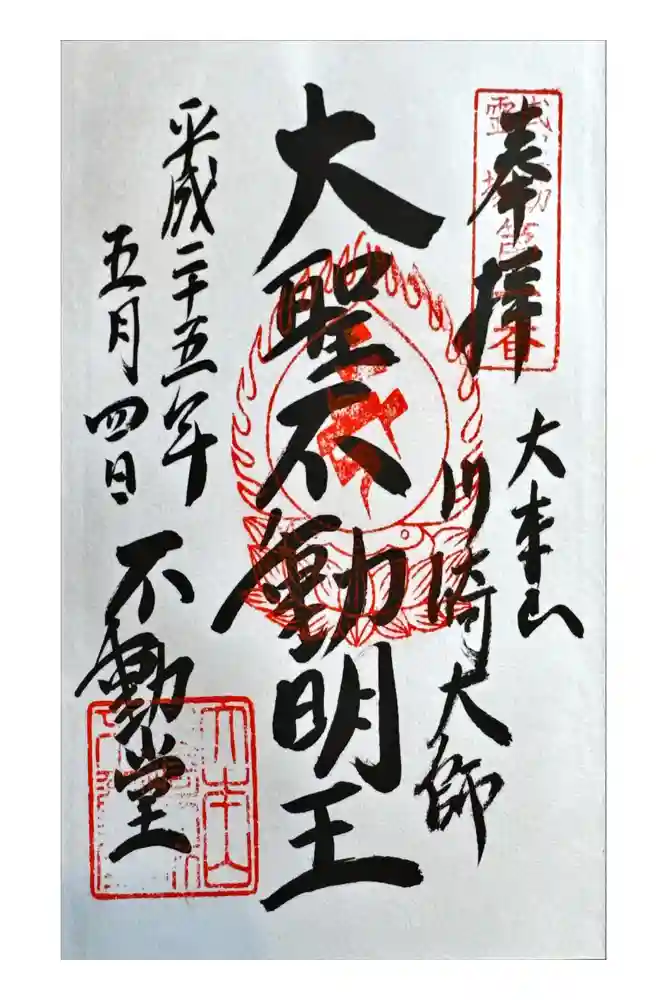 奉拝
大本山
川崎大師
大聖不動明王
平成二十五年
五月四日
不動堂
大本山